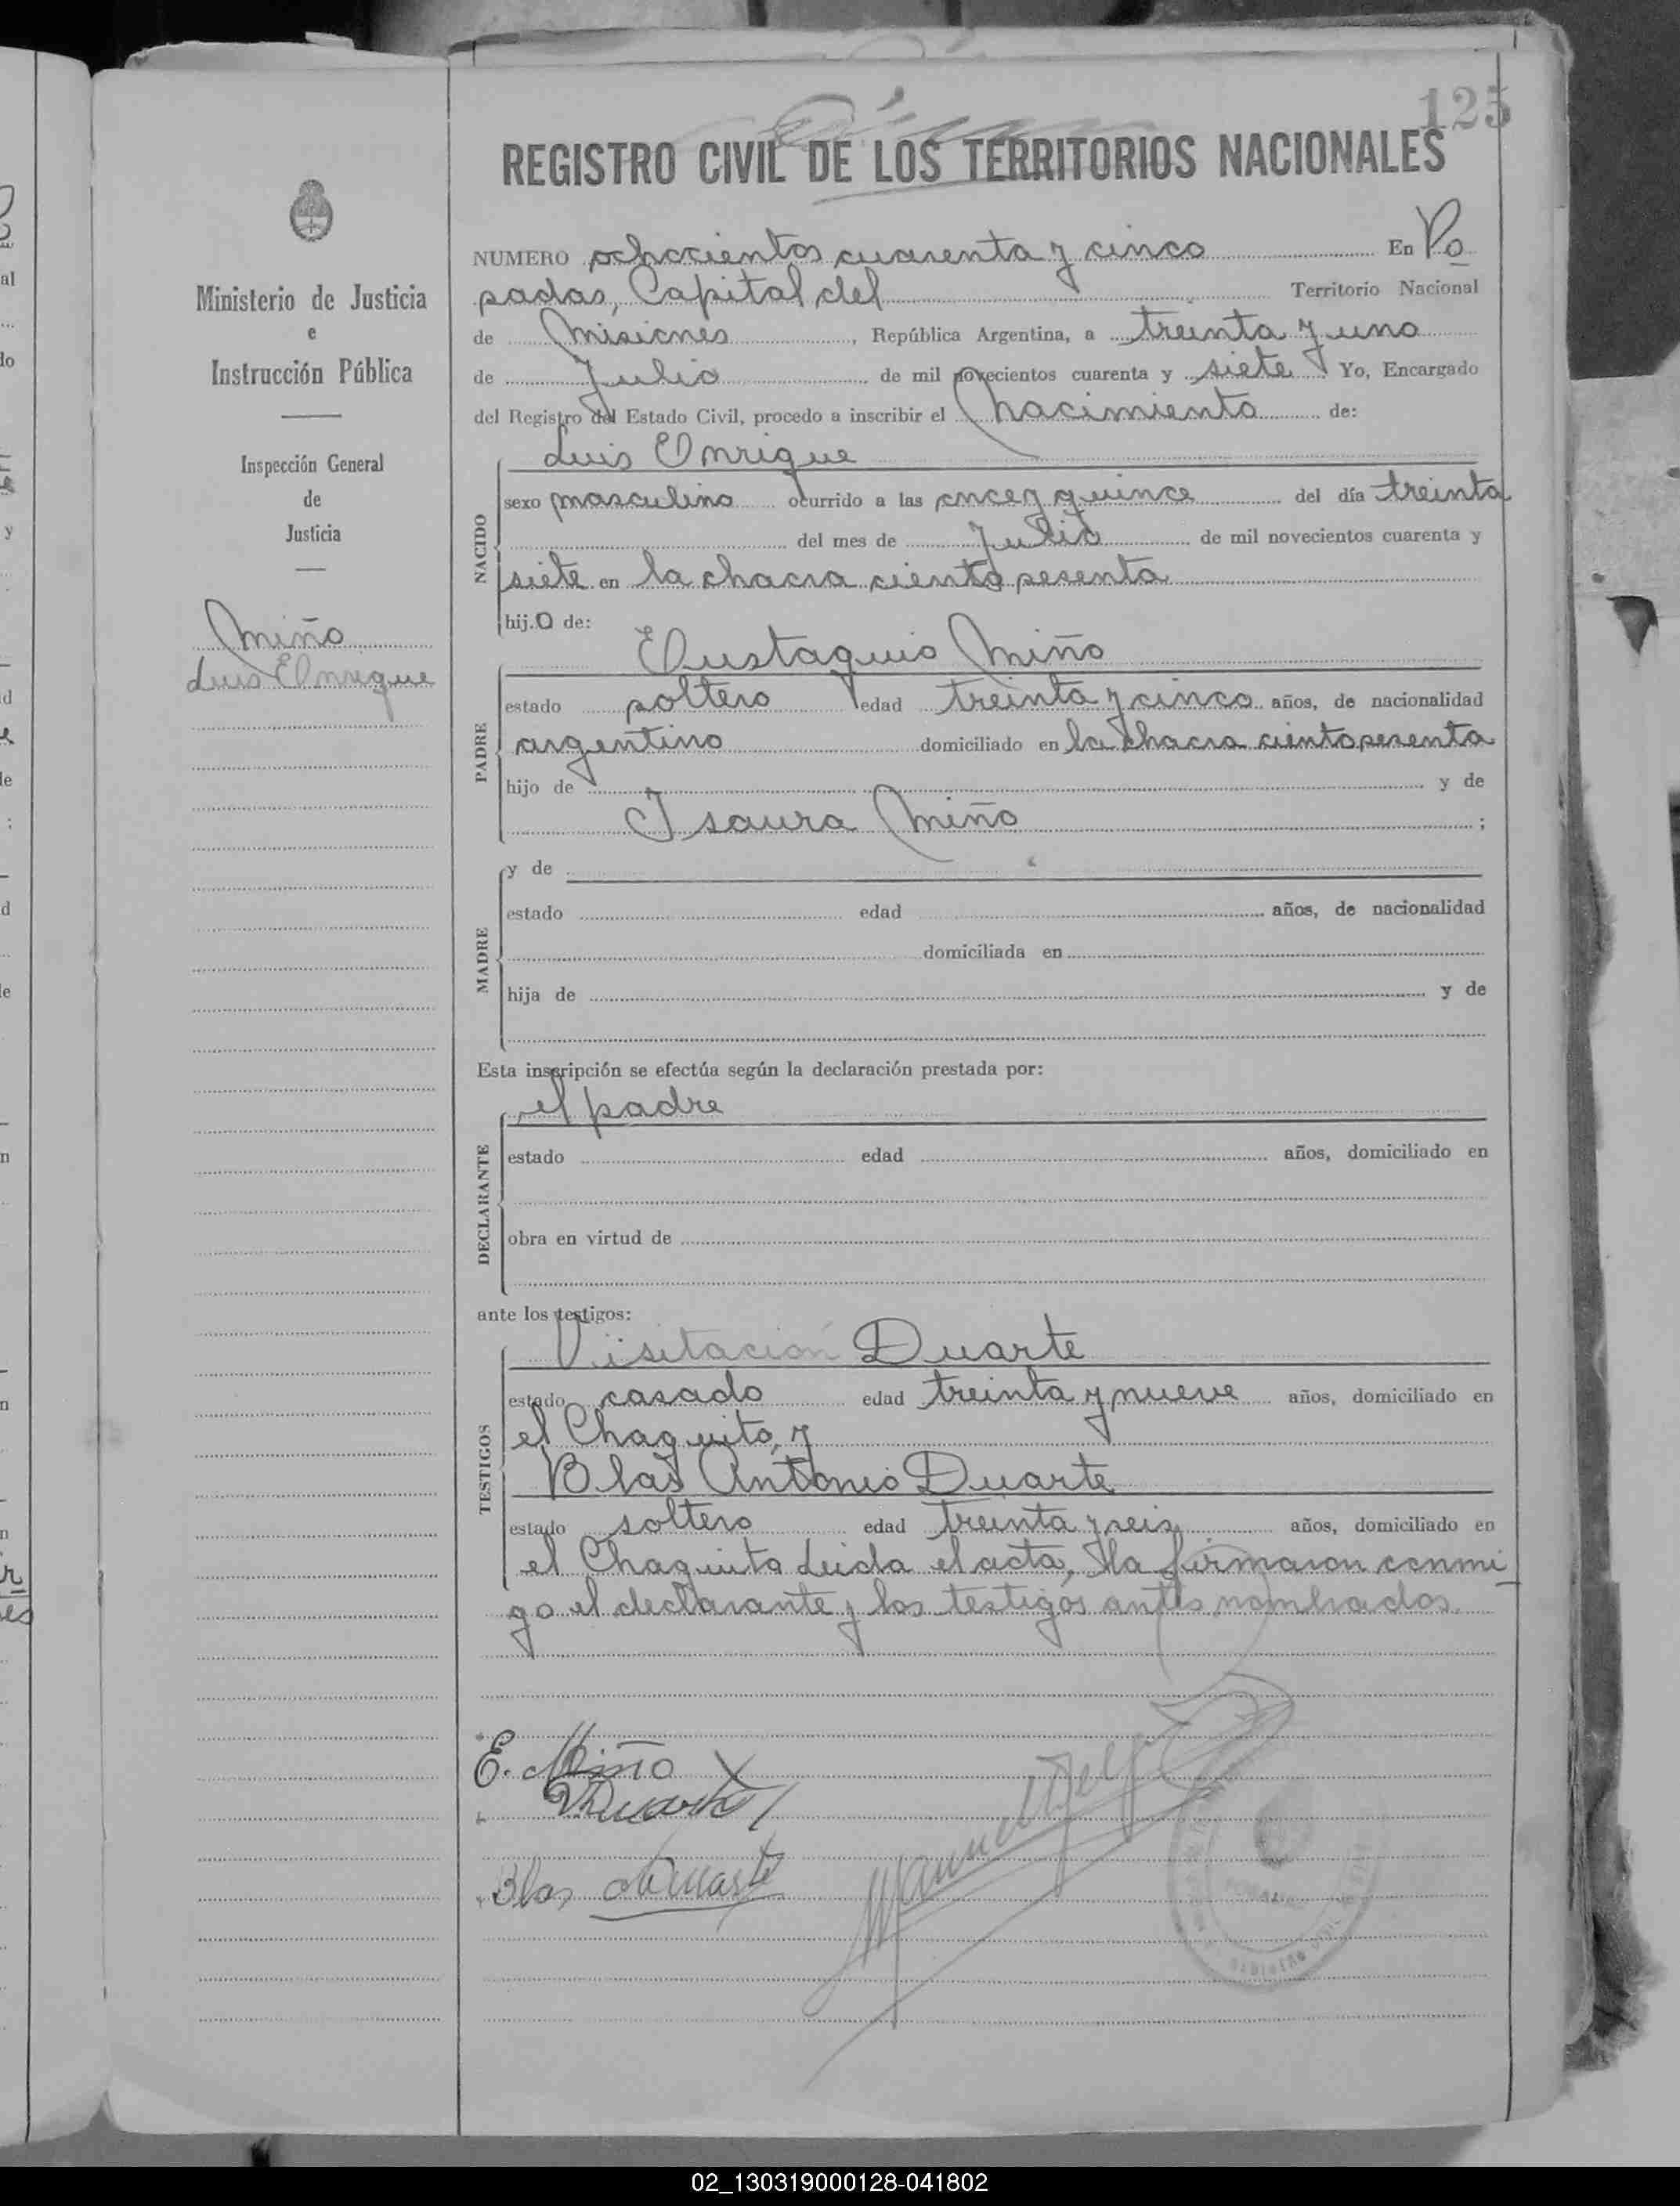 125
REGISTRO CIVIL DE LOS TERRITORIOS NACIONALES
Ministerio de Justicia
e
Instrucción Pública
Inspección General
de
Justicia
Miño
Luis Enrique
NUMERO ochocientos cuarenta y cinco En Po
sadas, Capital del Territorio Nacional
de Misiones, República Argentina, a treinta y uno
de Julio de mil novecientos cuarenta y siete Yo, Encargado
del Registro del Estado Civil, procedo a inscribir el nacimiento de:
NACIDO
Luis Enrique
sexo masculino ocurrido a las once y quince del día treinta
del mes de Julio de mil novecientos cuarenta y
siete en la chacra ciento sesenta
hij.o de:
PADRE
Eustaquio Miño
estado soltero edad treinta y cinco años, de nacionalidad
argentino domiciliado en la chacra ciento sesenta
hijo de y de
Isaura Miño ;
MADRE
y de
estado edad años, de nacionalidad
domiciliada en
hija de y de
Esta inscripción se efectúa según la declaración prestada por:
DECLARANTE
el padre
estado edad años, domiciliado en
obra en virtud de
ante los testigos:
TESTIGOS
Visitación Duarte
estado casado edad treinta y nueve años, domiciliado en
el Chaquito, y
Blas Antonio Duarte
estado soltero edad treinta y seis años, domiciliado en
el Chaquito Leida el acta, la firmaron conmi
go el declarante y los testigos antes nombrados.
E. Miño
VDuarte
Blas A Duarte
Manuel
02_130319000128-041802